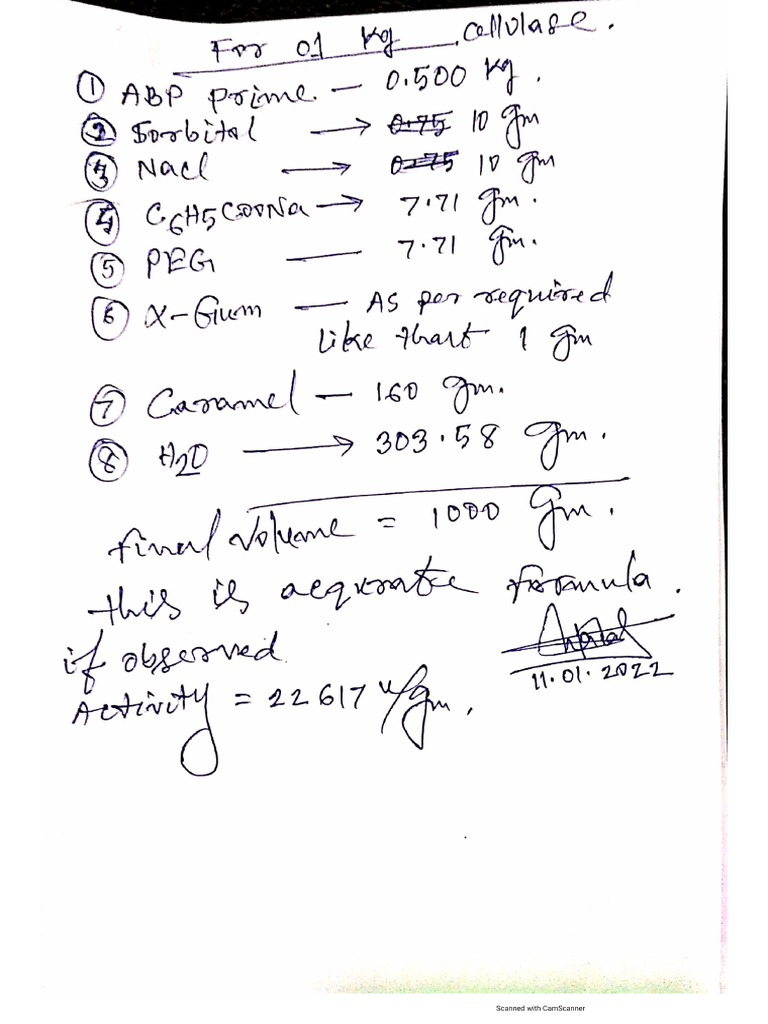 For 01 Kg cellulase.
① ABP prime. — 0.500 kg.
② Sorbital → 0.75 10 gm
③ Nacl → 0.75 10 gm
④ C6H5COONa → 7.71 gm.
⑤ PEG — 7.71 gm.
⑥ X-Gum — As per required
like thart 1 gm
⑦ Caramel — 160 gm.
⑧ H2O → 303.58 gm.
final volume = 1000 gm.
this is acqurate formula.
if observed
11.01.2022
Activity = 22617 u/gm.
Scanned with CamScanner